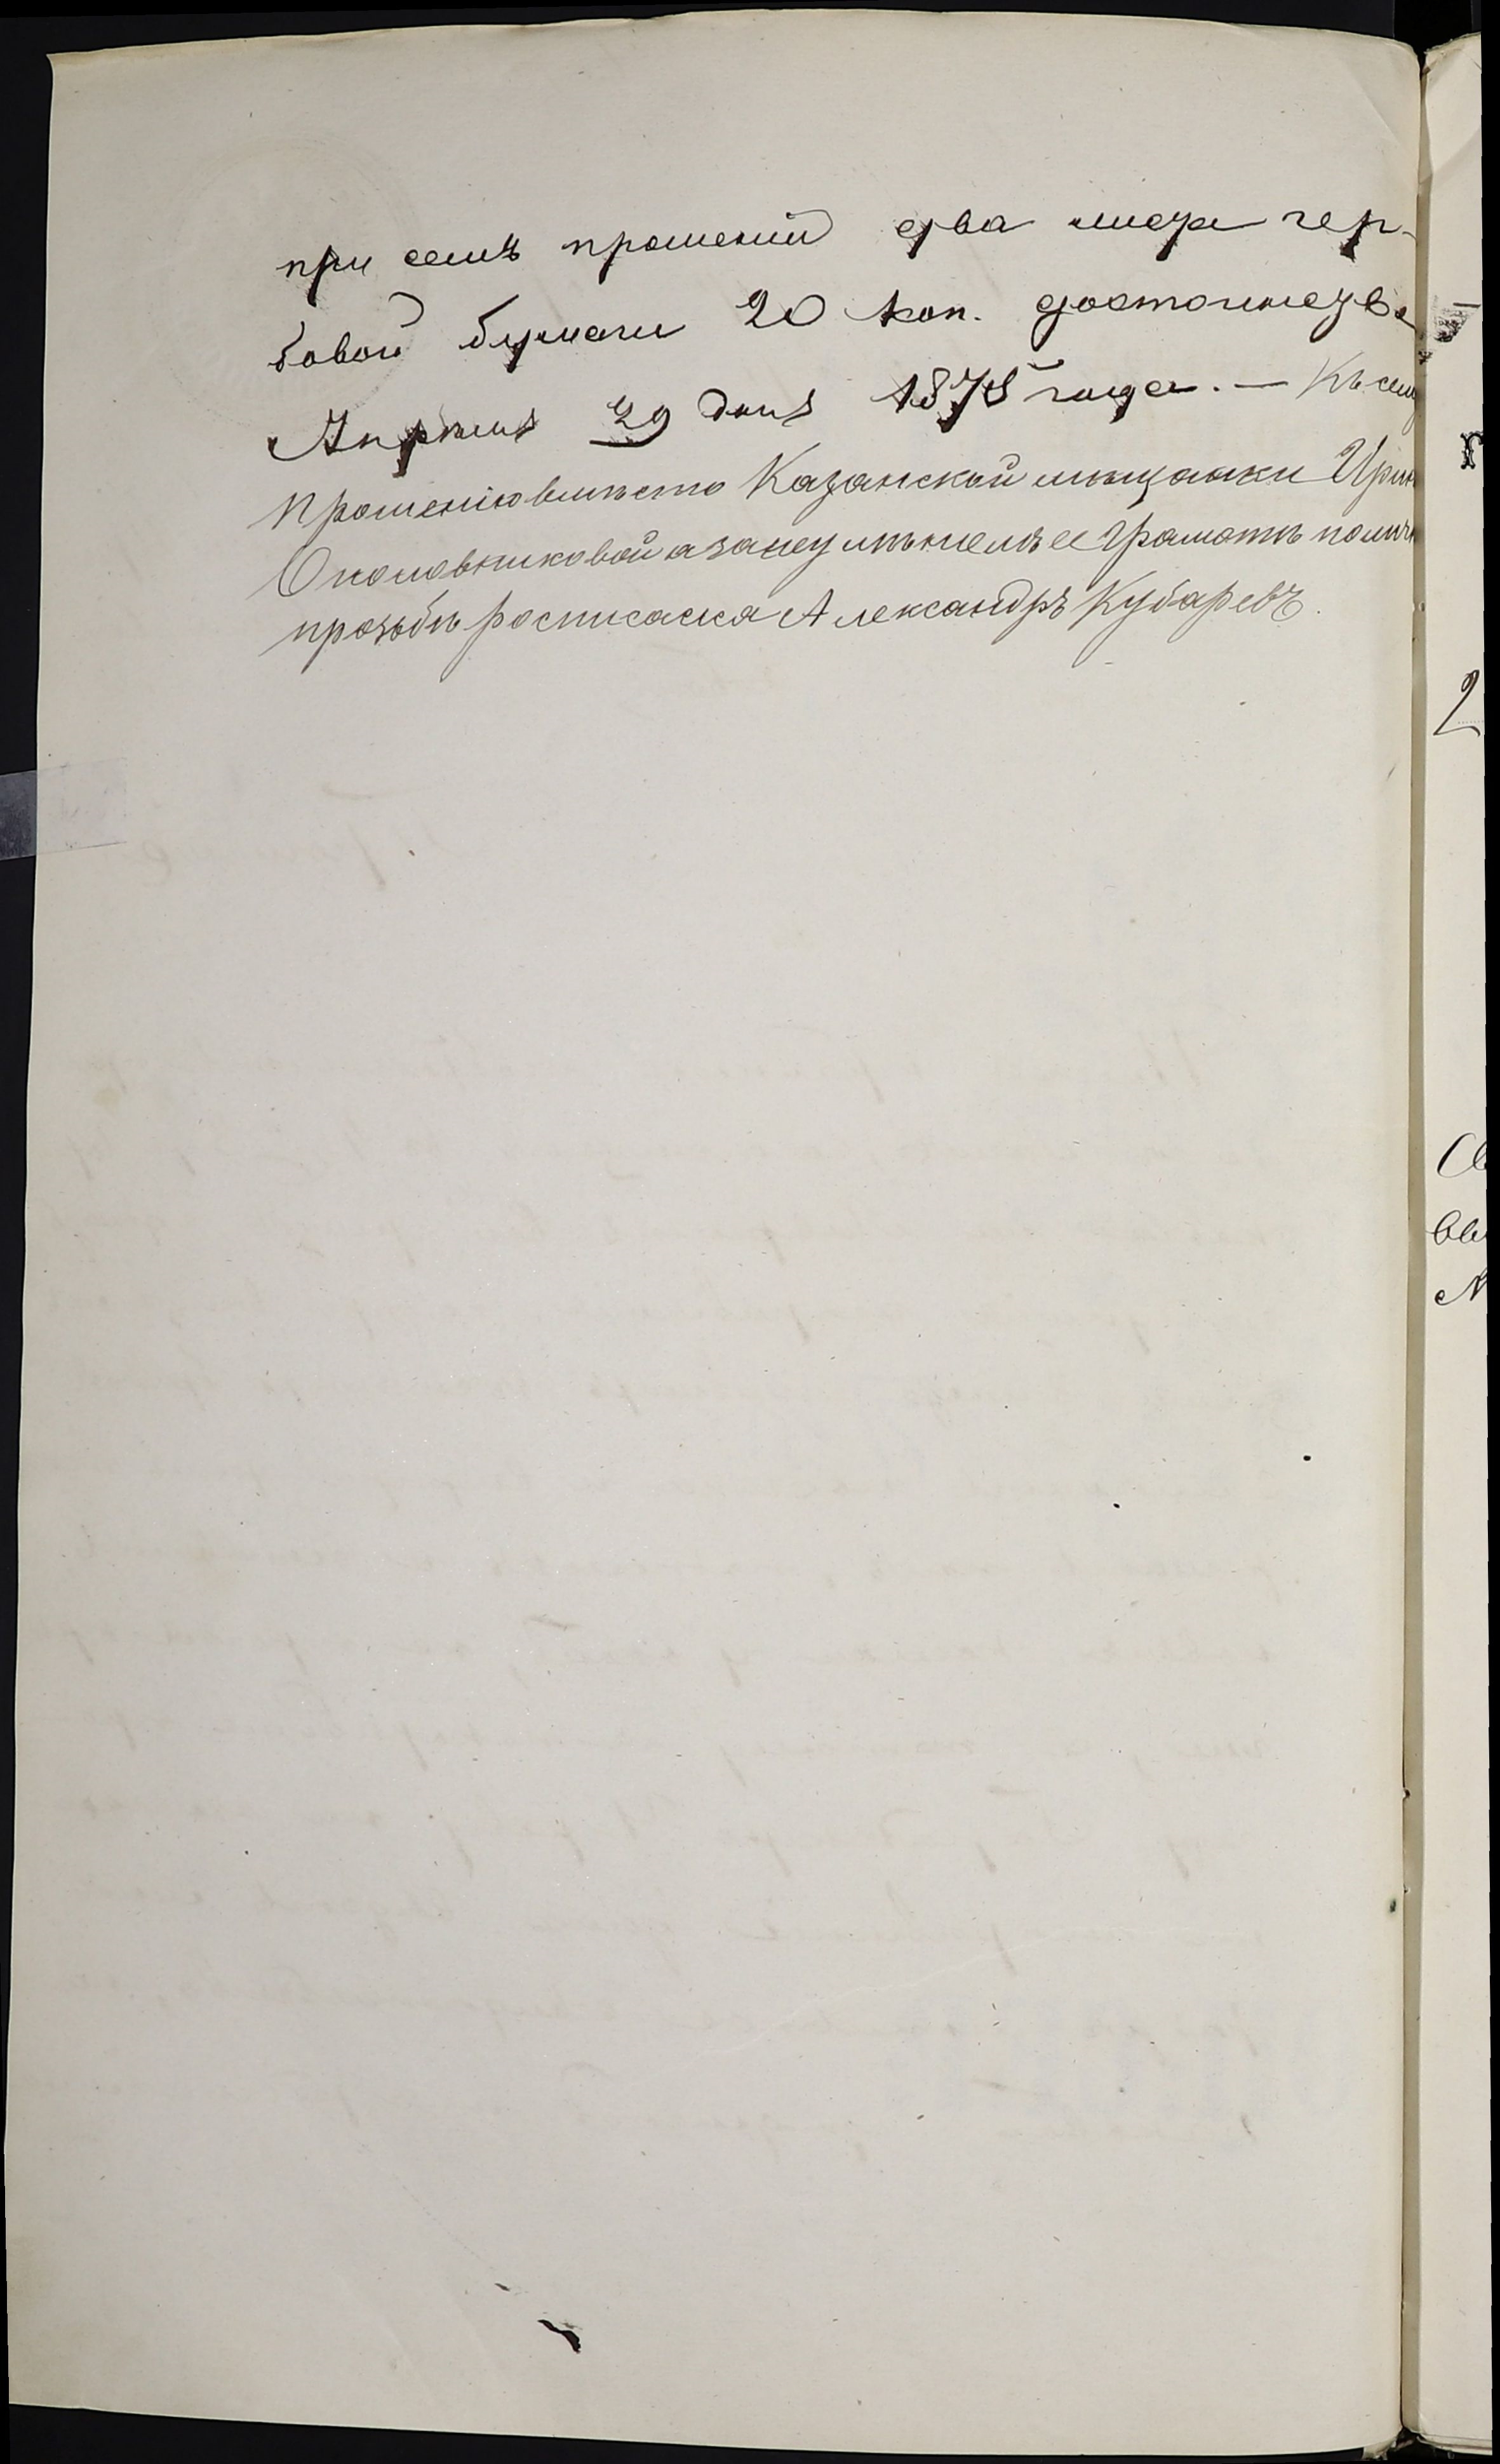 при семъ прошеніи два листа гер-
бовой бумаги 20 коп. достоинства
Апрѣля 29 дня 1878 года. — Къ сему
прошенію вмѣсто Казанской мѣщанки Ирин
а за неумѣнiемъ ее Грамотѣ по личн
прозьбѣ росписался Александръ Кубаревъ.